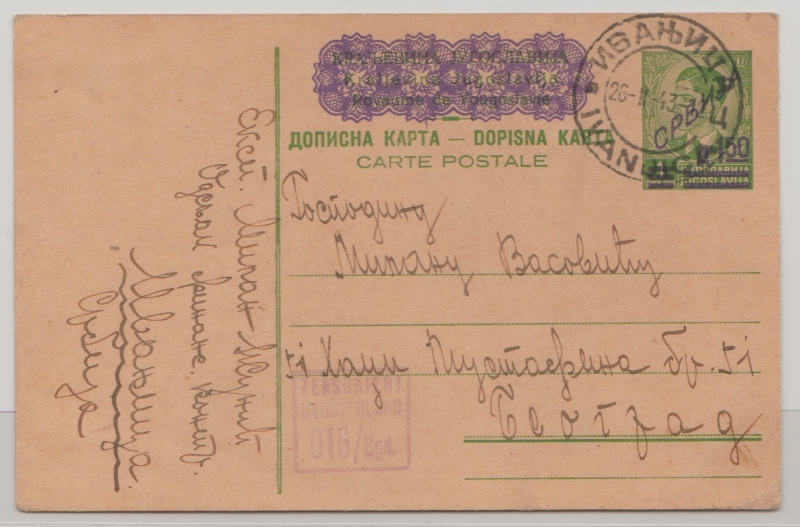 КРАЉЕВИНА ЈУГОСЛАВИЈА
Kraljevina Jugoslavija
Royaume de Yougoslavie
ДОПИСНА КАРТА — DOPISNA KARTA
CARTE POSTALE
ИВАЊИЦА
26-II-43
IVANJICA
СРБИЈА
1.50
ЈУГОСЛАВИЈА
JUGOSLAVIJA
Господину
Милану Васовићу
51 Хаџи Мустафина бр. 51
Београд
ZENSURIERT
016/Bgd.
Милан
Одсек финанс. контр.
Ивањица
Србија